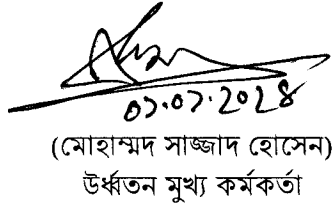 ০১.০১.২০২৪
(মোহাম্মদ সাজ্জাদ হোসেন)
উর্ধ্বতন মুখ্য কর্মকর্তা